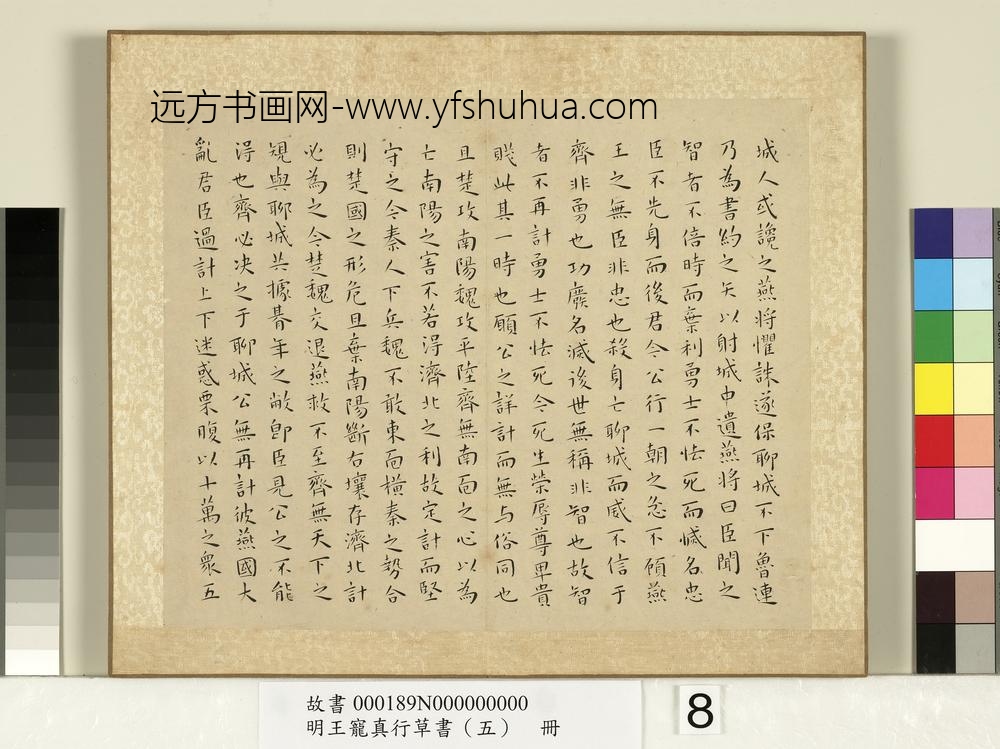 远方书画网-www.yfshuhua.com
城人或讒之燕將懼誅遂保聊城不下魯連
乃為書約之矢以射城中遺燕將曰臣聞之
智者不倍時而棄利勇士不怯死而滅名忠
臣不先身而後君今公行一朝之忿不顧燕
王之無臣非忠也殺身亡聊城而威不信于
齊非勇也功廢名滅後世無稱非智也故智
者不再計勇士不怯死今死生榮辱尊卑貴
賤此其一時也願公之詳計而無与俗同也
且楚攻南陽魏攻平陸齊無南面之心以為
亡南陽之害不若得濟北之利故定計而堅
守之今秦人下兵魏不敢東面橫秦之勢合
則楚國之形危且棄南陽斷右壤存濟北計
必為之今楚魏交退燕救不至齊無天下之
規與聊城共據朞年之敝即臣見公之不能
得也齊必决之于聊城公無再計彼燕國大
亂君臣過計上下迷惑栗腹以十萬之眾五
故書 000189N000000000
明王寵真行草書（五） 冊
8